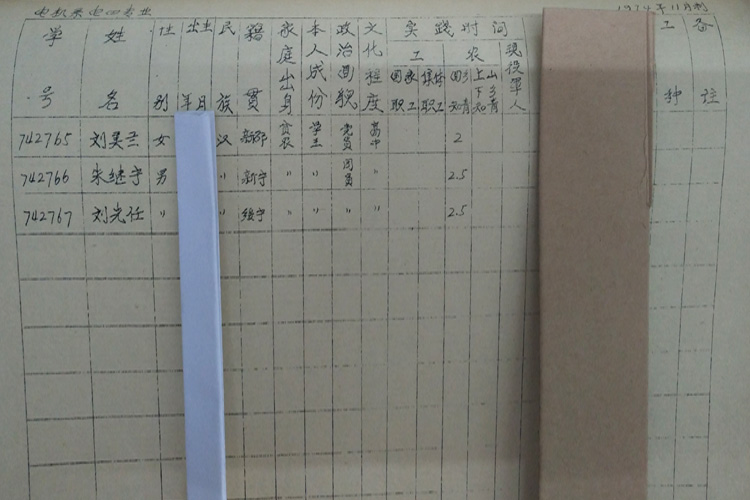 电机系电四专业 1974年11月制
学号 姓名 性别 出生年月 民族 籍贯 家庭出身 本人成份 政治面貌 文化程度 实践时间 工种 备注
工 农 现役军人
国家职工 集体职工 回乡知青 上山下乡知青
742765 刘美兰 女 汉 新邵 贫农 学生 党员 高中 2
742766 朱继宇 男 〃 新宁 〃 〃 团员 〃 2.5
742767 刘光任 〃 〃 绥宁 〃 〃 〃 〃 2.5